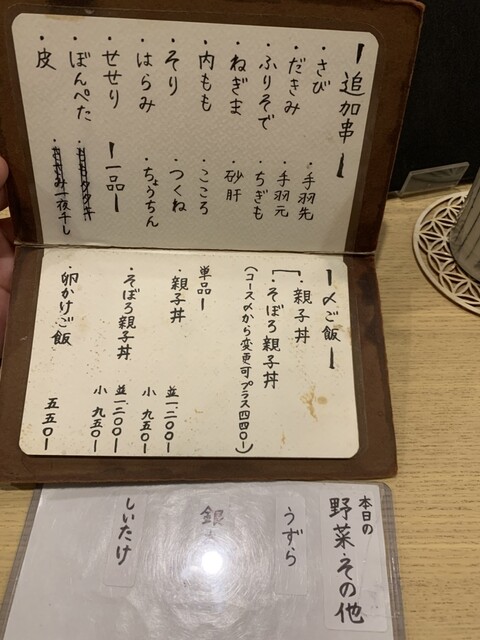 ー追加串ー
・さび
・だきみ
・ふりそで
・ねぎま
・内もも
・そり
・はらみ
・せせり
・ぼんぺた
・皮
・手羽先
・手羽元
・ちぎも
・砂肝
・こころ
・つくね
・ちょうちん
ー一品ー
一夜干し
ー〆ご飯ー
・親子丼
・そぼろ親子丼
(コース〆から変更可プラス四四〇ー)
単品ー
・親子丼
並一二〇〇ー
小 九五〇ー
・そぼろ親子丼
並一二〇〇ー
小 九五〇ー
・卵かけご飯
五五〇ー
本日の
野菜・その他
うずら
銀
しいたけ